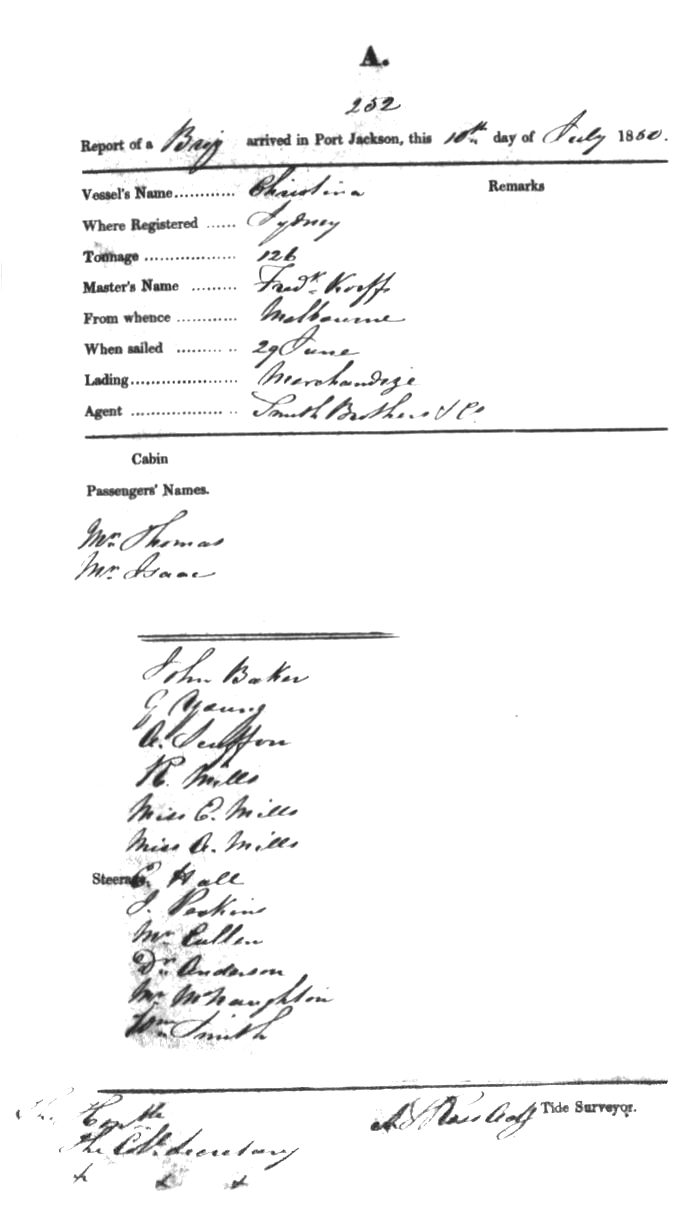 A.
252
Report of a Brig arrived in Port Jackson, this 10th day of July 1850.
Vessel's Name............ Christina Remarks
Where Registered ...... Sydney
Tonnage .................. 126
Master's Name ......... Fredk Korff
From whence ............ Melbourne
When sailed ......... .. 29 June
Lading..................... Merchandize
Agent .................. .. Smith Brothers & Co
Cabin
Passengers' Names.
Mr. Thomas
Mr. Isaac
John Baker
G Young
A.
R. Mills
Miss E. Mills
Miss A. Mills
Steerage. E. Hall
J. Perkins
Mr Cullen
Dr. Anderson
Mr McNaughton
Wm Smith
The Honble
The Col. Secretary
Tide Surveyor.
&
& &